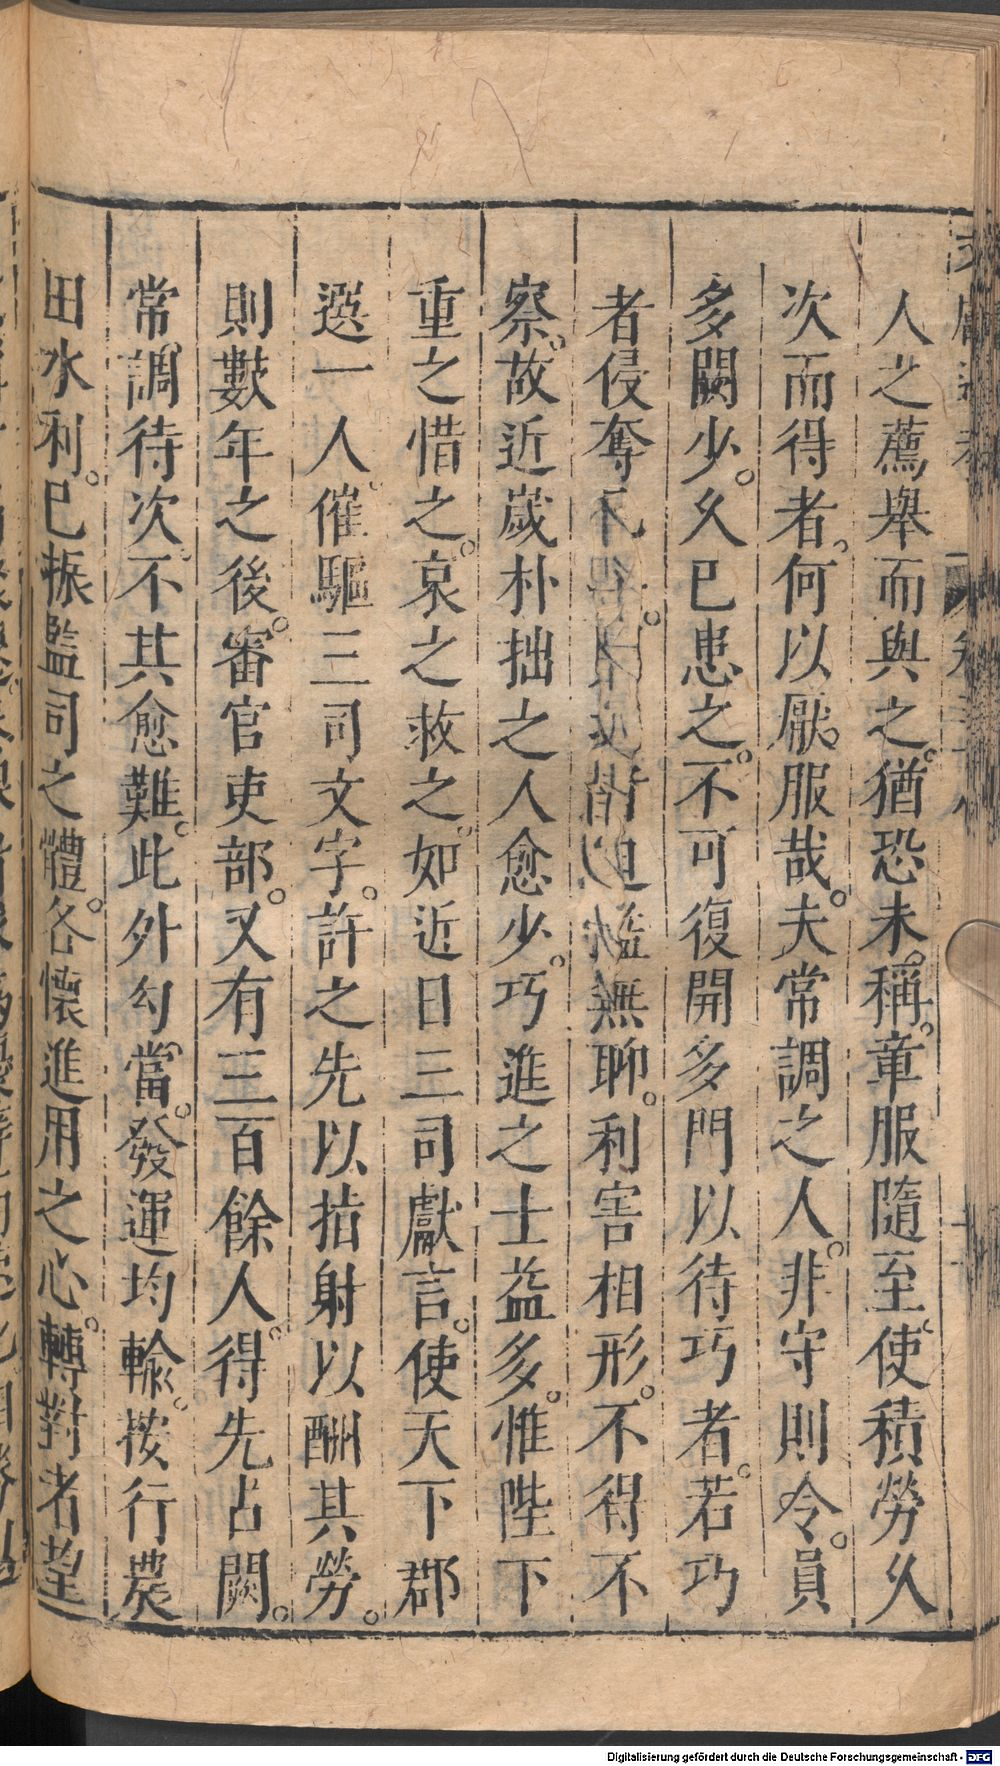 人之薦舉而與之。猶恐未稱。章服隨至。使積勞久
次而得者。何以厭服哉。夫常調之人。非守則令。員
多闕少。久已患之。不可復開多門以待巧者。若巧
者侵奪。則迫無聊。利害相形。不得不
察。故近歲朴拙之人愈少。巧進之士益多。惟陛下
重之惜之。哀之救之。如近日三司獻言。使天下郡
選一人。催驅三司文字。許之先以指射以酬其勞。
則數年之後。審官吏部。又有三百餘人。得先占闕。
常調待次。不其愈難。此外勾當。發運均輸。按行農
田水利。已振監司之體。各懷進用之心。轉對者望
Digitalisierung gefördert durch die Deutsche Forschungsgemeinschaft - DFG